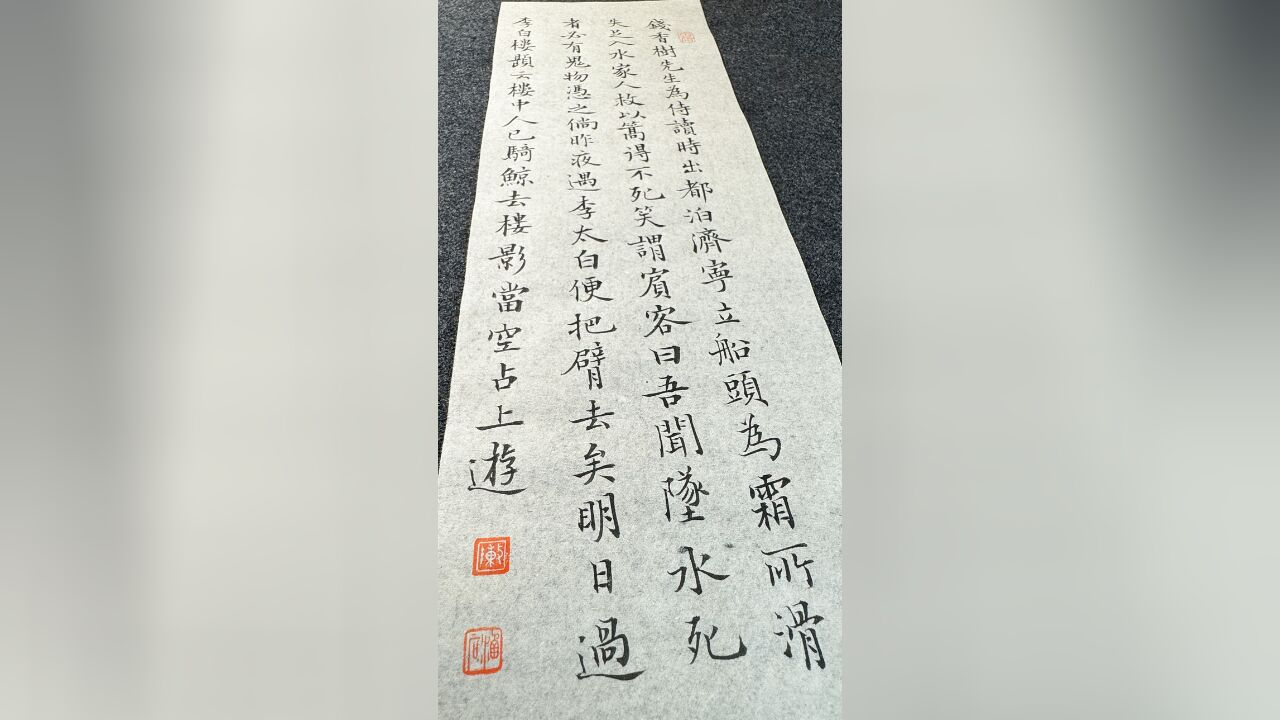 錢香樹先生為侍讀時出都泊濟寧立船頭為霜所滑
失足入水家人救以篙得不死笑謂賓客曰吾聞墜水死
者必有鬼物憑之倘昨夜遇李太白便把臂去矣明日過
李白樓題云樓中人已騎鯨去樓影當空占上遊